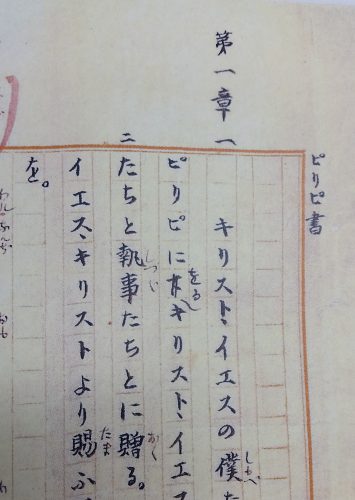 ピリピ書
第一章一
しもべ
キリスト、イエスの僕た
をる
ピリピに在キリスト、イエス
しつじ
おく
二
たちと執事たちとに贈る。
たま
イエス、キリストより賜ふ、
を。